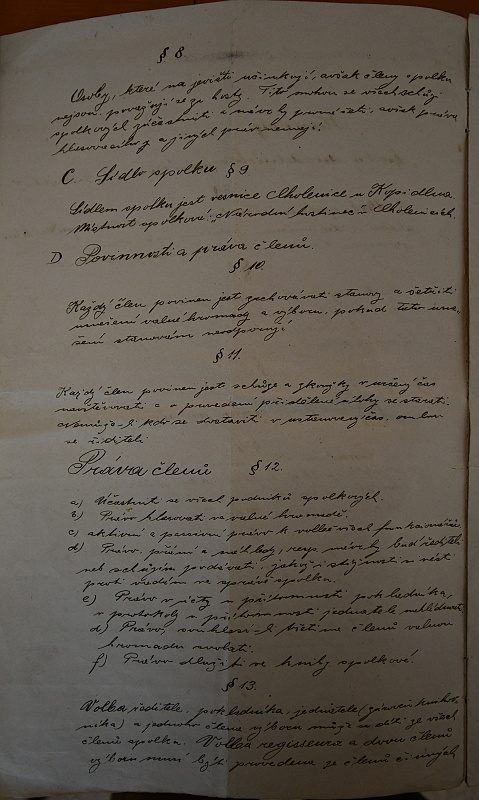 § 8
Osoby, které na jevišti účinkují, avšak členy spolku
nejsou, považují se za hosty. Tito mohou se všech schůzí
spolkových zúčastniti a návrhy pronášeti, avšak práva
hlasovacího a jiných práv nemají.
C. Sídlo spolku § 9
Sídlem spolku jest vesnice Cholenice u Kopidlna.
Místnost spolková: „Národní hostinec" v Cholenicích.
D Povinnosti a práva členů.
§ 10.
Každý člen povinen jest zachovávati stanovy a šetřiti
usnešení valné hromady a výboru, pokud tato usne-
šení stanovám neodporují.
§ 11.
Každý člen povinen jest schůze a zkoušky v určený čas
navštěvovati a o provedení přidělené úlohy se starati.
Nemůže-li kdo se dostaviti v ustanovený čas, omluv
se řediteli.
Práva členů § 12.
a) Účastniti se všech podniků spolkových.
b) Právo hlasovati ve valné hromadě.
c) aktivní a passivní právo k volbě všech funkcionářů
d) Právo, přání a náhledy, resp. návrhy buď řediteli
neb schůzím podávati, jakož i stížnosti vésti
proti vadám ve správě spolku.
e) Právo v účty v přítomnosti pokladníka,
v protokoly v přítomnosti jednatele nahlédnouti
d) Právo, souhlasí-li třetina členů valnou
hromadu svolati.
f) Právo dlužiti se knihy spolkové.
§ 13.
Volba ředitele, pokladníka, jednatele (zároveň kniho-
níka) a jednoho člena výboru může se díti ze všech
členů spolku. Volba regisseura a dvou členů
výboru musí býti provedena ze členů činných